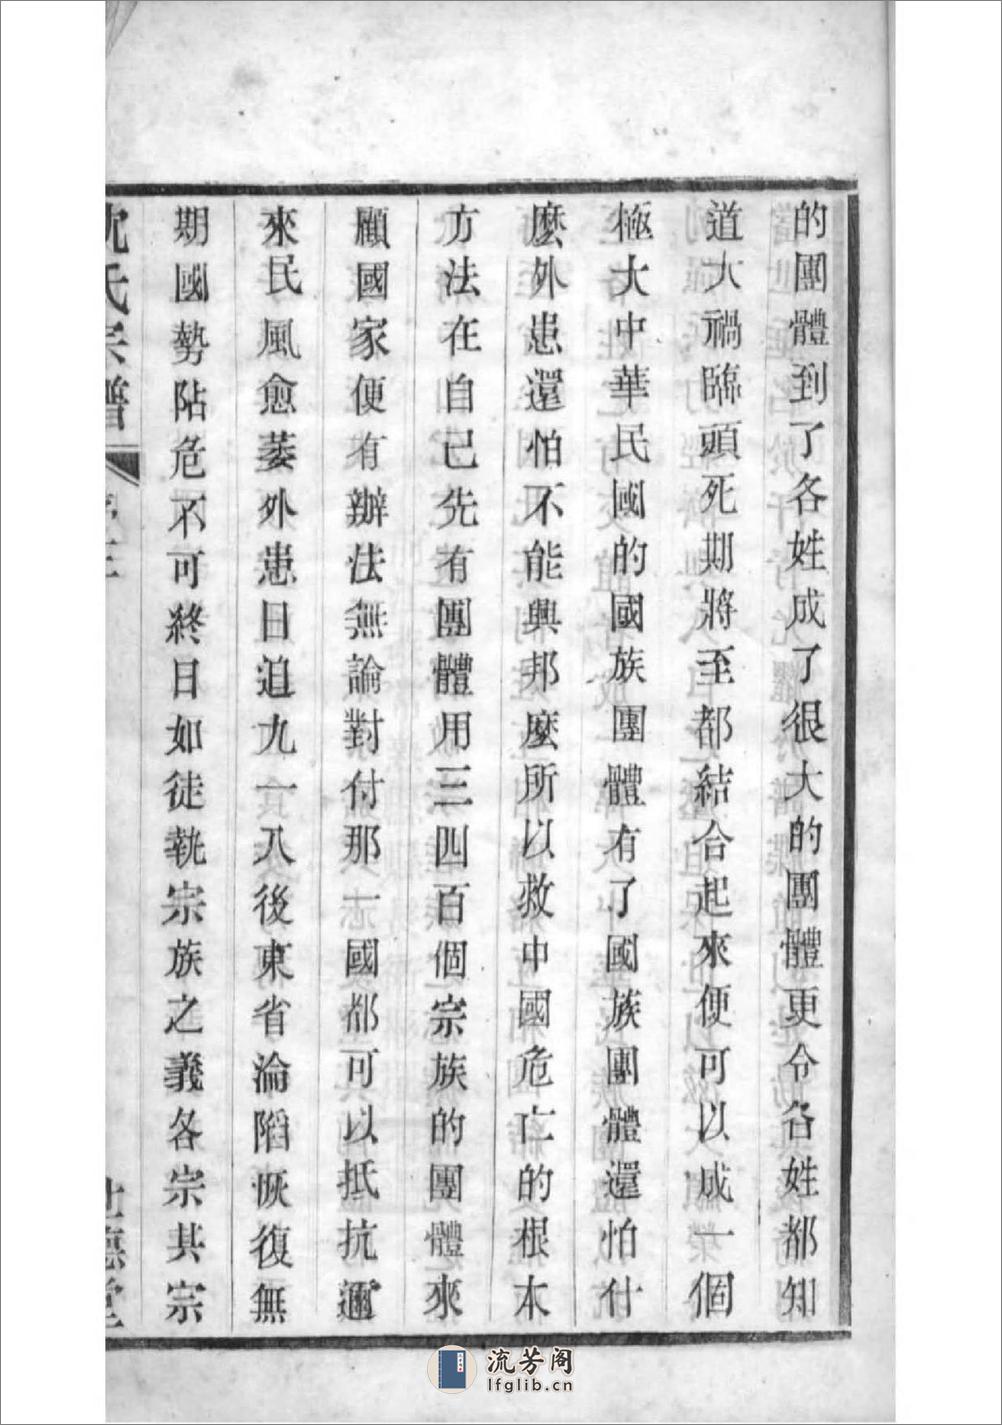 的團體到了各姓成了很大的團體更令各姓都知
道大禍臨頭死期將至都結合起來便可以成一個
極大中華民國的國族團體有了國族團體還怕什
麼外患還怕不能興邦麼所以救中國危亡的根本
方法在自己先有團體用三四百個宗族的團體來
顧國家便有辦法無論對付那一國都可以抵抗邇
來民風愈萎外患日迫九一八後東省淪陷恢復無
期國勢阽危不可終日如徒執宗族之義各宗其宗
沈氏宗譜
世德堂
流芳阁
lfglib.cn